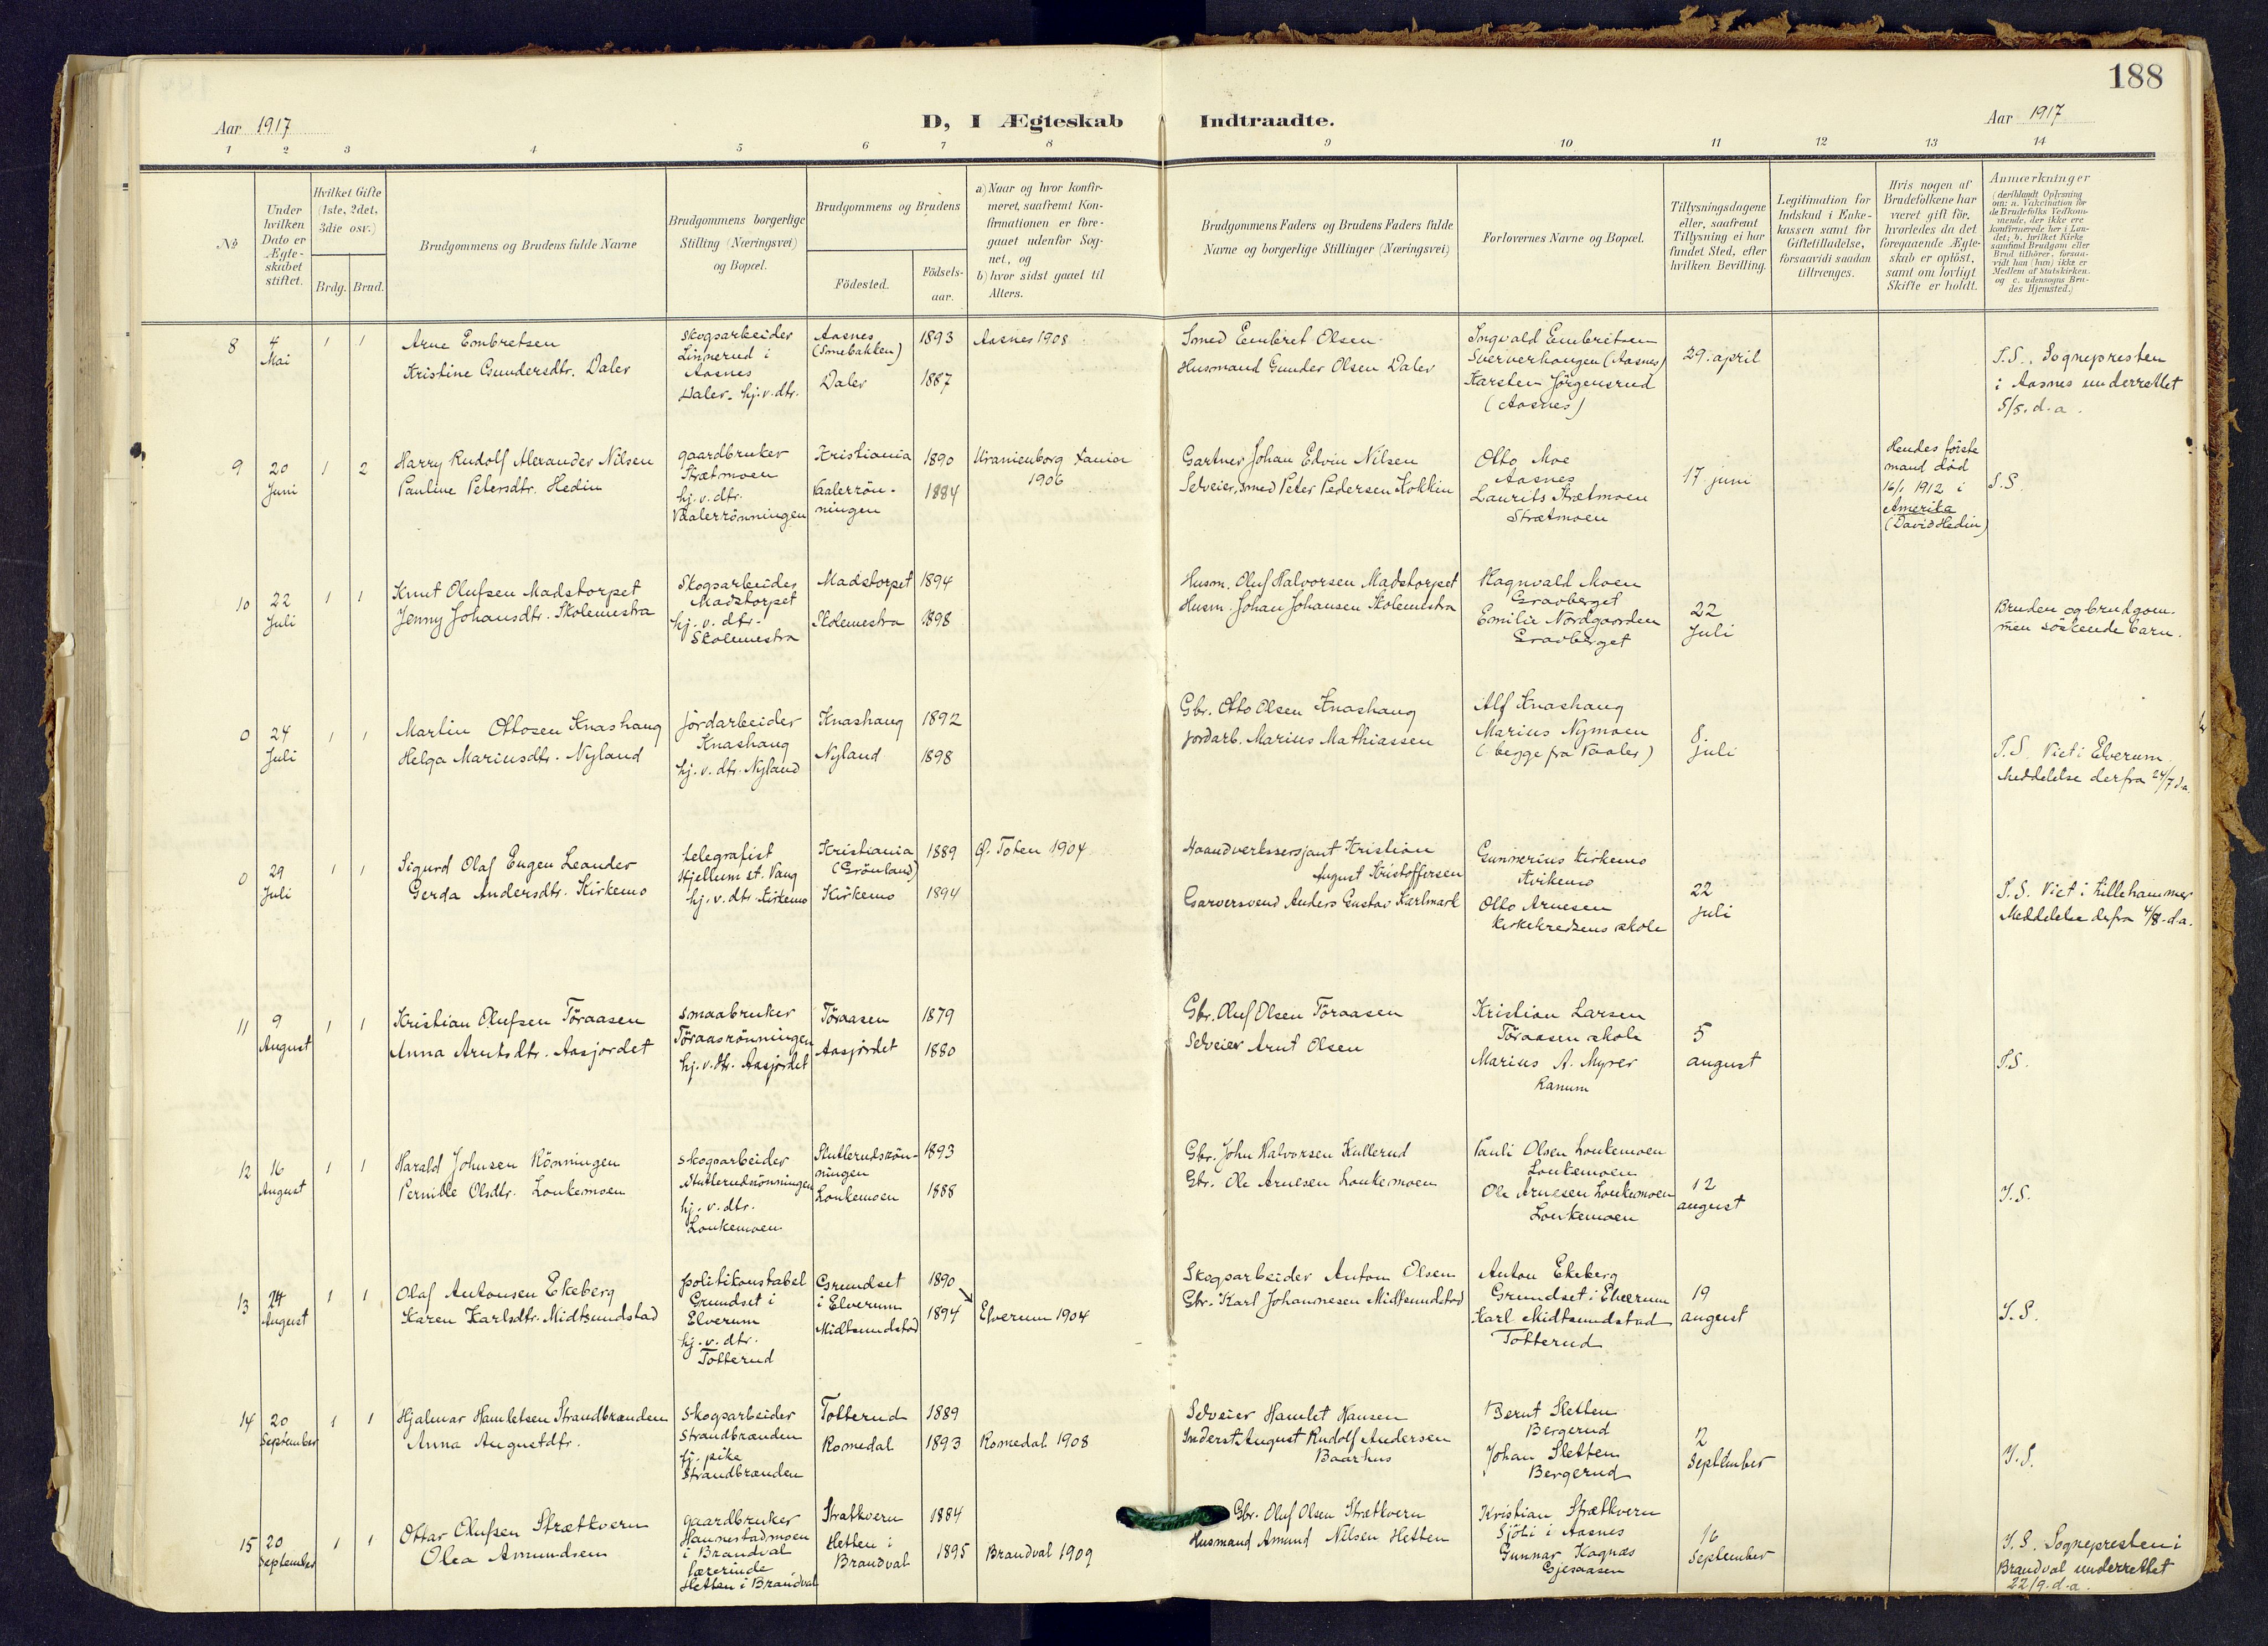 188
Aar 1917
D, I Ægteskab Indtraadte.
Aar 1917
1 2 3 4 5 6 7 8 9 10 11 12 13 14
No
Under hvilken Dato er Ægteskabet stiftet.
Hvilket Gifte (1ste, 2det, 3die osv.)
Brdg. Brud.
Brudgommens og Brudens fulde Navne
Brudgommens borgerlige Stilling (Næringsvei) og Bopæl.
Brudgommens og Brudens
Födested.
Födselsaar.
a) Naar og hvor konfirmeret, saafremt Konfirmationen er foregaaet udenfor Sognet, og
b) hvor sidst gaaet til Alters.
Brudgommens Faders og Brudens Faders fulde Navne og borgerlige Stillinger (Næringsvei)
Forlovernes Navne og Bopæl.
Tillysningsdagene eller, saafremt Tillysning ei har fundet Sted, efter hvilken Bevilling.
Legitimation for Indskud i Enkekassen samt for Giftetilladelse, forsaavidt saadan tiltrænges.
Hvis nogen af Brudefolkene har været gift för, hvorledes da det foregaaende Ægteskab er oplöst, samt om lovligt Skifte er holdt.
Anmærkninger
(deriblandt Oplysning om: a. Vakcination för de Brudefolks Vedkommende, der ikke ere konfirmerede her i Landet; b. hvilket Kirkesamfund Brudgom eller Brud tilhörer, forsaavidt han (hun) ikke er Medlem af Statskirken, og c. udensogns Brudes Hjemsted.)
8
4 Mai
1 1
Arne Embretsen
Kristine Gundersdtr. Daler
Skogsarbeider
Linnerud i
Aasnes
Daler - hj.v.dtr.
Aasnes
Daler
1893
1887
Aasnes 1908
Smed Embret Olsen
Husmand Gunder Olsen Daler
Ingvald Embretsen
(Aasnes)
Karsten Jörgensrud
(Aasnes)
29. april
S.S. Sognepresten
i Aasnes underrettet
5/5. d.a.
9
20 Juni
1 2
Harry Rudolf Alexander Nilsen
Pauline Petersdtr. Hedin
gaardbruker
Strætmoen
hj.v.dtr.
Vaalerrönningen
Kristiania
Vaalerrönningen
1890
1884
Uranienborg
1906
Gartner Johan Edvin Nilsen
Selveier, smed Peter Pedersen
Otto Moe
Aasnes
Laurits Strætmoen
Strætmoen
17 juni
Hendes förste
mand död
16/1 1912 i
Amerika
(David Hedin)
S.S.
10
22 Juli
1 1
Knut Olufsen Madstorpet
Jenny Johansdtr. Skolemestra
Skogsarbeider
Madstorpet
hj.v.dtr.
Skolemestra
Madstorpet
Skolemestra
1894
1898
Husm. Oluf Halvorsen Madstorpet
Husm. Johan Johansen Skolemestra
Ragnvald Moen
Gravberget
Emilie Nordgaarden
Gravberget
22
Juli
Bruden og brudgommen söskendebarn.
0
24 Juli
1 1
Martin Ottosen Knashaug
Helga Mariusdtr. Nyland
Jordarbeider
Knashaug
hj.v.dtr. Nyland
Knashaug
Nyland
1892
1898
Gbr. Otto Olsen Knashaug
Jordarb. Marius Mathiassen
Alf Knashaug
Marius Nymoen
(begge fra Vaaler)
8
juli
S.S. Viet i Elverum.
Meddelelse derfra 24/7 d.a.
0
29 Juli
1 1
Sigurd Olaf Eugen Leander
Gerda Andersdtr. Kirkemo
telegrafist
Hjellum st. Vang
hj.v.dtr. Kirkemo
Kristiania
(Grönland)
Kirkemo
1889
1894
Ø. Toten 1904
Haandverkssersjant Kristian
August Kristoffersen
Garversvend Anders Gustav Karlmark
Gunnerius Kirkemo
Kirkemo
Otto Arnesen
Kirkekredsens skole
22
juli
S.S. Viet i Lillehammer
Meddelelse derfra 4/8. d.a.
11
9 August
1 1
Kristian Olufsen Töraasen
Anna Arntsdtr. Aasjordet
smaabruker
Töraasrönningen
hj.v.dtr. Aasjordet
Töraasen
Aasjordet
1879
1880
Gbr. Oluf Olsen Töraasen
Selveier Arnt Olsen
Kristian Larsen
Töraasen skole
Marius A. Myrer
Ranum
5
august
S.S.
12
16 August
1 1
Harald Johnsen Rönningen
Pernille Olsdtr. Loukemoen
Skogsarbeider
Slutlerudrönningen
hj.v.dtr.
Loukemoen
Slutlerudsrönningen
Loukemoen
1893
1888
Gbr. John Halvorsen Kullerud
Gbr. Ole Arnesen Loukemoen
Pauli Olsen Loukemoen
Loukemoen
Ole Arnesen Loukemoen
Loukemoen
12
august
S.S.
13
24 August
1 1
Olaf Antonsen Ekeberg
Karen Karlsdtr. Midtsundstad
politikonstabel
Grundset i
Elverum
hj.v.dtr.
Totterud
Grundset
i Elverum
Midtsundstad
1890
1894
Elverum 1904
Skogsarbeider Anton Olsen
Gbr. Karl Johannesen Midtsundstad
Anton Ekeberg
Grundset i Elverum
Karl Midtsundstad
Totterud
19
august
S.S.
14
20 September
1 1
Hjalmar Hamletsen Strandbrænden
Anna Augustdtr.
Skogsarbeider
Strandbrænden
tj. pike
Strandbrænden
Totterud
Romedal
1889
1893
Romedal 1908
Selveier Hamlet Hansen
Inderst August Rudolf Andersen
Baarhus
Bernt Sletten
Bergerud
Johan Sletten
Bergerud
2
September
S.S.
15
20 September
1 1
Ottar Olufsen Strætkvern
Olea Amundsen
gaardbruker
Hannestadmoen
i Brandval
lærerinde
Hetten i Brandval
Strætkvern
Hetten i
Brandval
1884
1895
Brandval 1909
Gbr. Oluf Olsen Strætkvern
Husmand Amund Nilsen Hetten
Kristian Strætkvern
Sjöli i Aasnes
Gunnar Kognæs
Gjesaasen
16
September
S.S. Sognepresten i
Brandval underrettet
22/9. d.a.